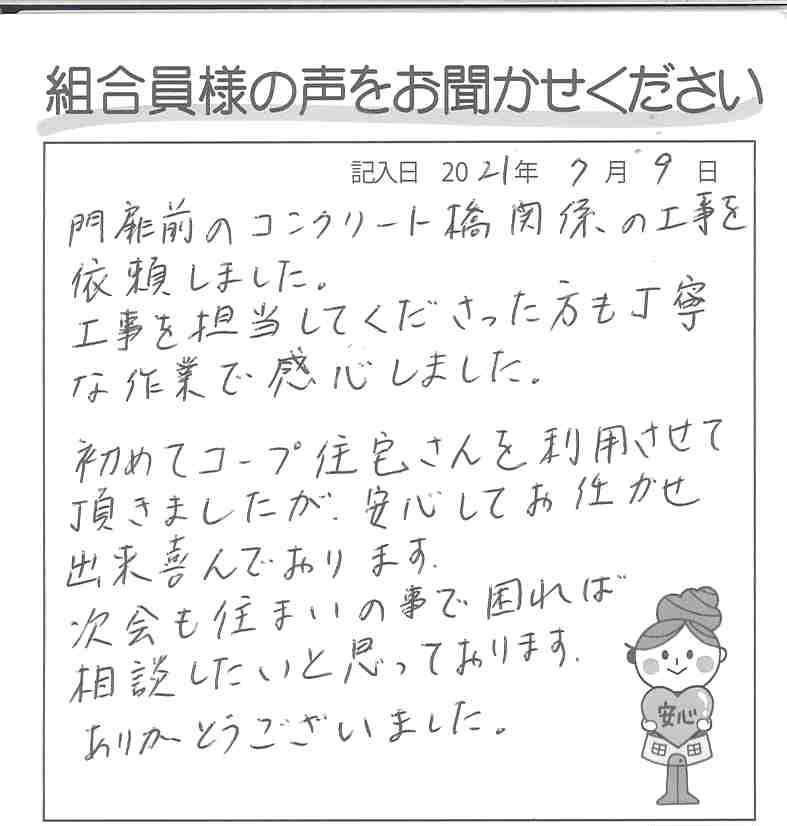 組合員様の声をお聞かせください
記入日 2021年 7月 9日
門扉前のコンクリート橋関係の工事を
依頼しました。
工事を担当してくださった方も丁寧
な作業で感心しました。
初めてコープ住宅さんを利用させて
頂きましたが、安心してお任かせ
出来喜んでおります。
次会も住まいの事で困れば
相談したいと思っております。
ありがとうございました。
安心